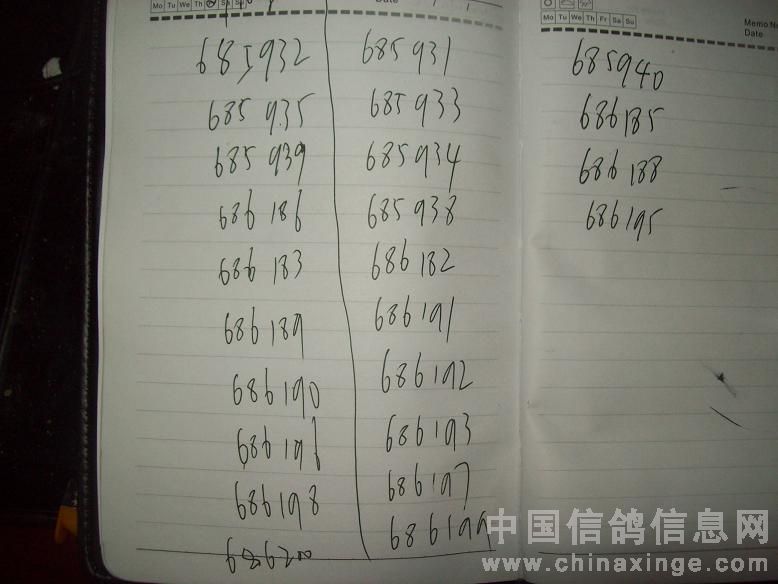 Mo Tu We Th Fr Sa Su
685932
685935
685939
686186
686183
686189
686190
686198
686200
Date
685931
685933
685934
685938
686182
686191
686192
686193
686197
686199
Mo Tu We Th Fr Sa Su
Memo No
Date
685940
686185
686188
686195
中国信鸽信息网
www.chinaxinge.com